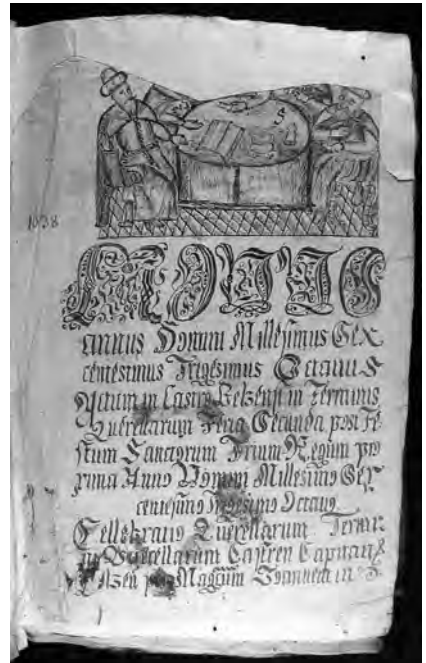 1638
annus Domini Millesimus Sex
centesimus Trigesimus Octavus
Actum in Castro Belzensi in Terminis
Querellarum Feria Secunda post Fe
stum Sanctorum Trium Regum pro
xima Anno Domini Millesimo Sex
centesimo Trigesimo Octavo
Querellarum Termi
Querellarum Castren Capitan
Belzen per in